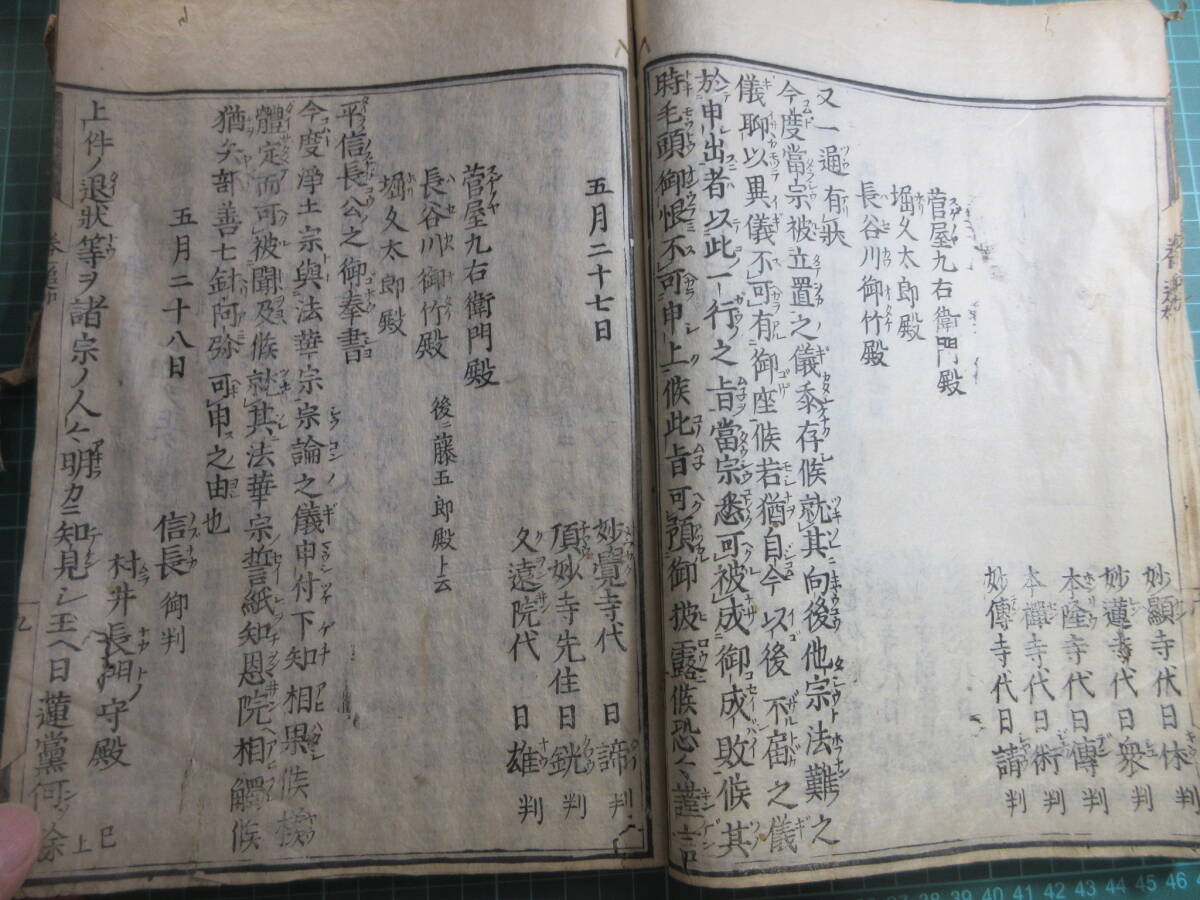 妙顯寺代日休判
妙蓮寺代日衆判
本隆寺代日傳判
本禪寺代日術判
妙傳寺代日請判
菅屋九右衛門殿
堀久太郎殿
長谷川御竹殿
又一通有狀
今度當宗被立置之儀忝存候就其向後他宗法難之
儀聊以異儀不可有御座候若猶自今以後不宿之儀
於申出者以此一行之旨當宗悉可被成御成敗候其
時毛頭御恨不可申上候此旨可預御披露候恐々謹言
五月二十七日
妙覺寺代日諦判
頂妙寺先住日珖判
久遠院代日雄判
菅屋九右衛門殿
長谷川御竹殿 後ニ藤五郎殿ト云
堀久太郎殿
平信長公之御奉書
今度淨土宗與法華宗宗論之儀申付下知相果候様
體定而可被聞及候就其法華宗誓紙知恩院ヘ相觸候
猶矢部善七針阿弥可申之由也
五月二十八日
信長御判
村井長門守殿
上件ノ退狀等ヲ諸宗ノ人々明カニ知見シ玉ヘ日蓮黨何ゾ餘